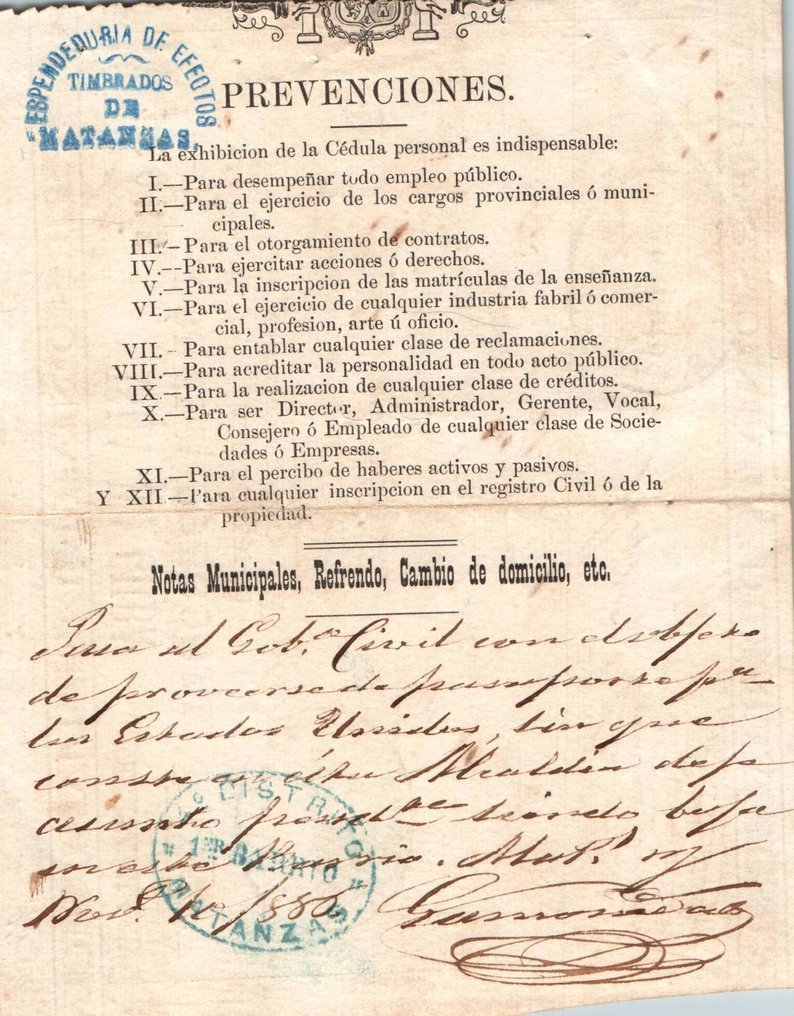 ESPENDEDURIA DE EFECTOS
TIMBRADOS
DE
MATANZAS.
PREVENCIONES.
La exhibicion de la Cédula personal es indispensable:
I.—Para desempeñar todo empleo público.
II.—Para el ejercicio de los cargos provinciales ó muni-
cipales.
III.—Para el otorgamiento de contratos.
IV.—Para ejercitar acciones ó derechos.
V.—Para la inscripcion de las matrículas de la enseñanza.
VI.—Para el ejercicio de cualquier industria fabril ó comer-
cial, profesion, arte ú oficio.
VII.—Para entablar cualquier clase de reclamaciones.
VIII.—Para acreditar la personalidad en todo acto público.
IX.—Para la realizacion de cualquier clase de créditos.
X.—Para ser Director, Administrador, Gerente, Vocal,
Consejero ó Empleado de cualquier clase de Socie-
dades ó Empresas.
XI.—Para el percibo de haberes activos y pasivos.
Y XII.—Para cualquier inscripcion en el registro Civil ó de la
propiedad.
Notas Municipales, Refrendo, Cambio de domicilio, etc.
Pasa al Gob.no Civil con el objeto
de proveerse de pasaporte pa
los Estados Unidos, sin que
conste en ésta Alcaldia
asunto pend.te siendo baja
en este Barrio. Mat.s y
Nov.e 10/886
DISTRITO
1ER BARRIO
MATANZAS